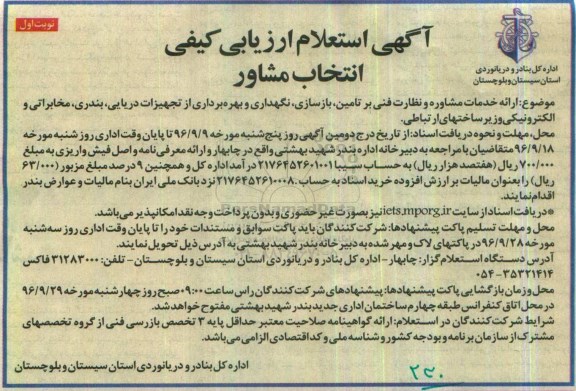 نوبت اول
آگهی استعلام ارزیابی کیفی
انتخاب مشاور
اداره کل بنادر و دریانوردی
استان سیستان وبلوچستان
موضوع: ارائه خدمات مشاوره و نظارت فنی بر تامین، بازسازی، نگهداری و بهره برداری از تجهیزات دریایی، بندری، مخابراتی و
الکترونیکی وزیر ساختهای ارتباطی.
محل، مهلت و نحوه دریافت اسناد: از تاریخ درج دومین آگهی روز پنج شنبه مورخه ۹۶/۹/۹ تا پایان وقت اداری روز شنبه مورخه
۹۶/۹/۱۸ متقاضیان با مراجعه به دبیرخانه اداره بندر شهید بهشتی واقع در چابهار و ارائه معرفی نامه و اصل فیش واریزی به مبلغ
۷۰۰/۰۰۰ ریال (هفتصد هزار ریال) به حساب سیبا ۲۱۷۶۴۵۲۶۰۱۰۰۱ درآمد اداره کل و همچنین ۹ درصد مبلغ مزبور (۶۳/۰۰۰
ریال) را بعنوان مالیات بر ارزش افزوده خرید اسناد به حساب ۲۱۷۶۴۵۲۶۱۰۰۰۸ نزد بانک ملی ایران بنام مالیات و عوارض بندر
اقدام نمایند.
*دریافت اسناد از سایت iets.mporg.ir نیز بصورت غیر حضوری و بدون پرداخت وجه نقد امکانپذیر می باشد.
محل و مهلت تسلیم پاکت پیشنهادها: شرکت کنندگان باید پاکت سوابق و مستندات خود را تا پایان وقت اداری روز سه شنبه
مورخه ۹۶/۹/۲۸ در پاکتهای لاک و مهر شده به دبیرخانه بندر شهید بهشتی به آدرس ذیل تحویل نمایند.
آدرس دستگاه استعلام گزار: چابهار - اداره کل بندر و دریانوردی استان سیستان و بلوچستان - تلفن: ۳۱۲۸۳۰۰۰ فاکس
۳۵۳۲۱۴۱۴ - ۰۵۴
محل و زمان بازگشایی پاکت پیشنهادها: پیشنهادهای شرکت کنندگان راس ساعت ۰۹:۰۰ صبح روز چهارشنبه مورخه ۹۶/۹/۲۹
در محل اتاق کنفرانس طبقه چهارم ساختمان اداری جدید بندر شهید بهشتی مفتوح خواهد شد.
شرایط شرکت کنندگان در استعلام: ارائه گواهینامه صلاحیت معتبر حداقل پایه ۳ تخصص بازرسی فنی از گروه تخصصهای
مشترک از سازمان برنامه و بودجه کشور و شناسه ملی و کد اقتصادی الزامی می باشد.
اداره کل بنادر و دریانوردی استان سیستان وبلوچستان